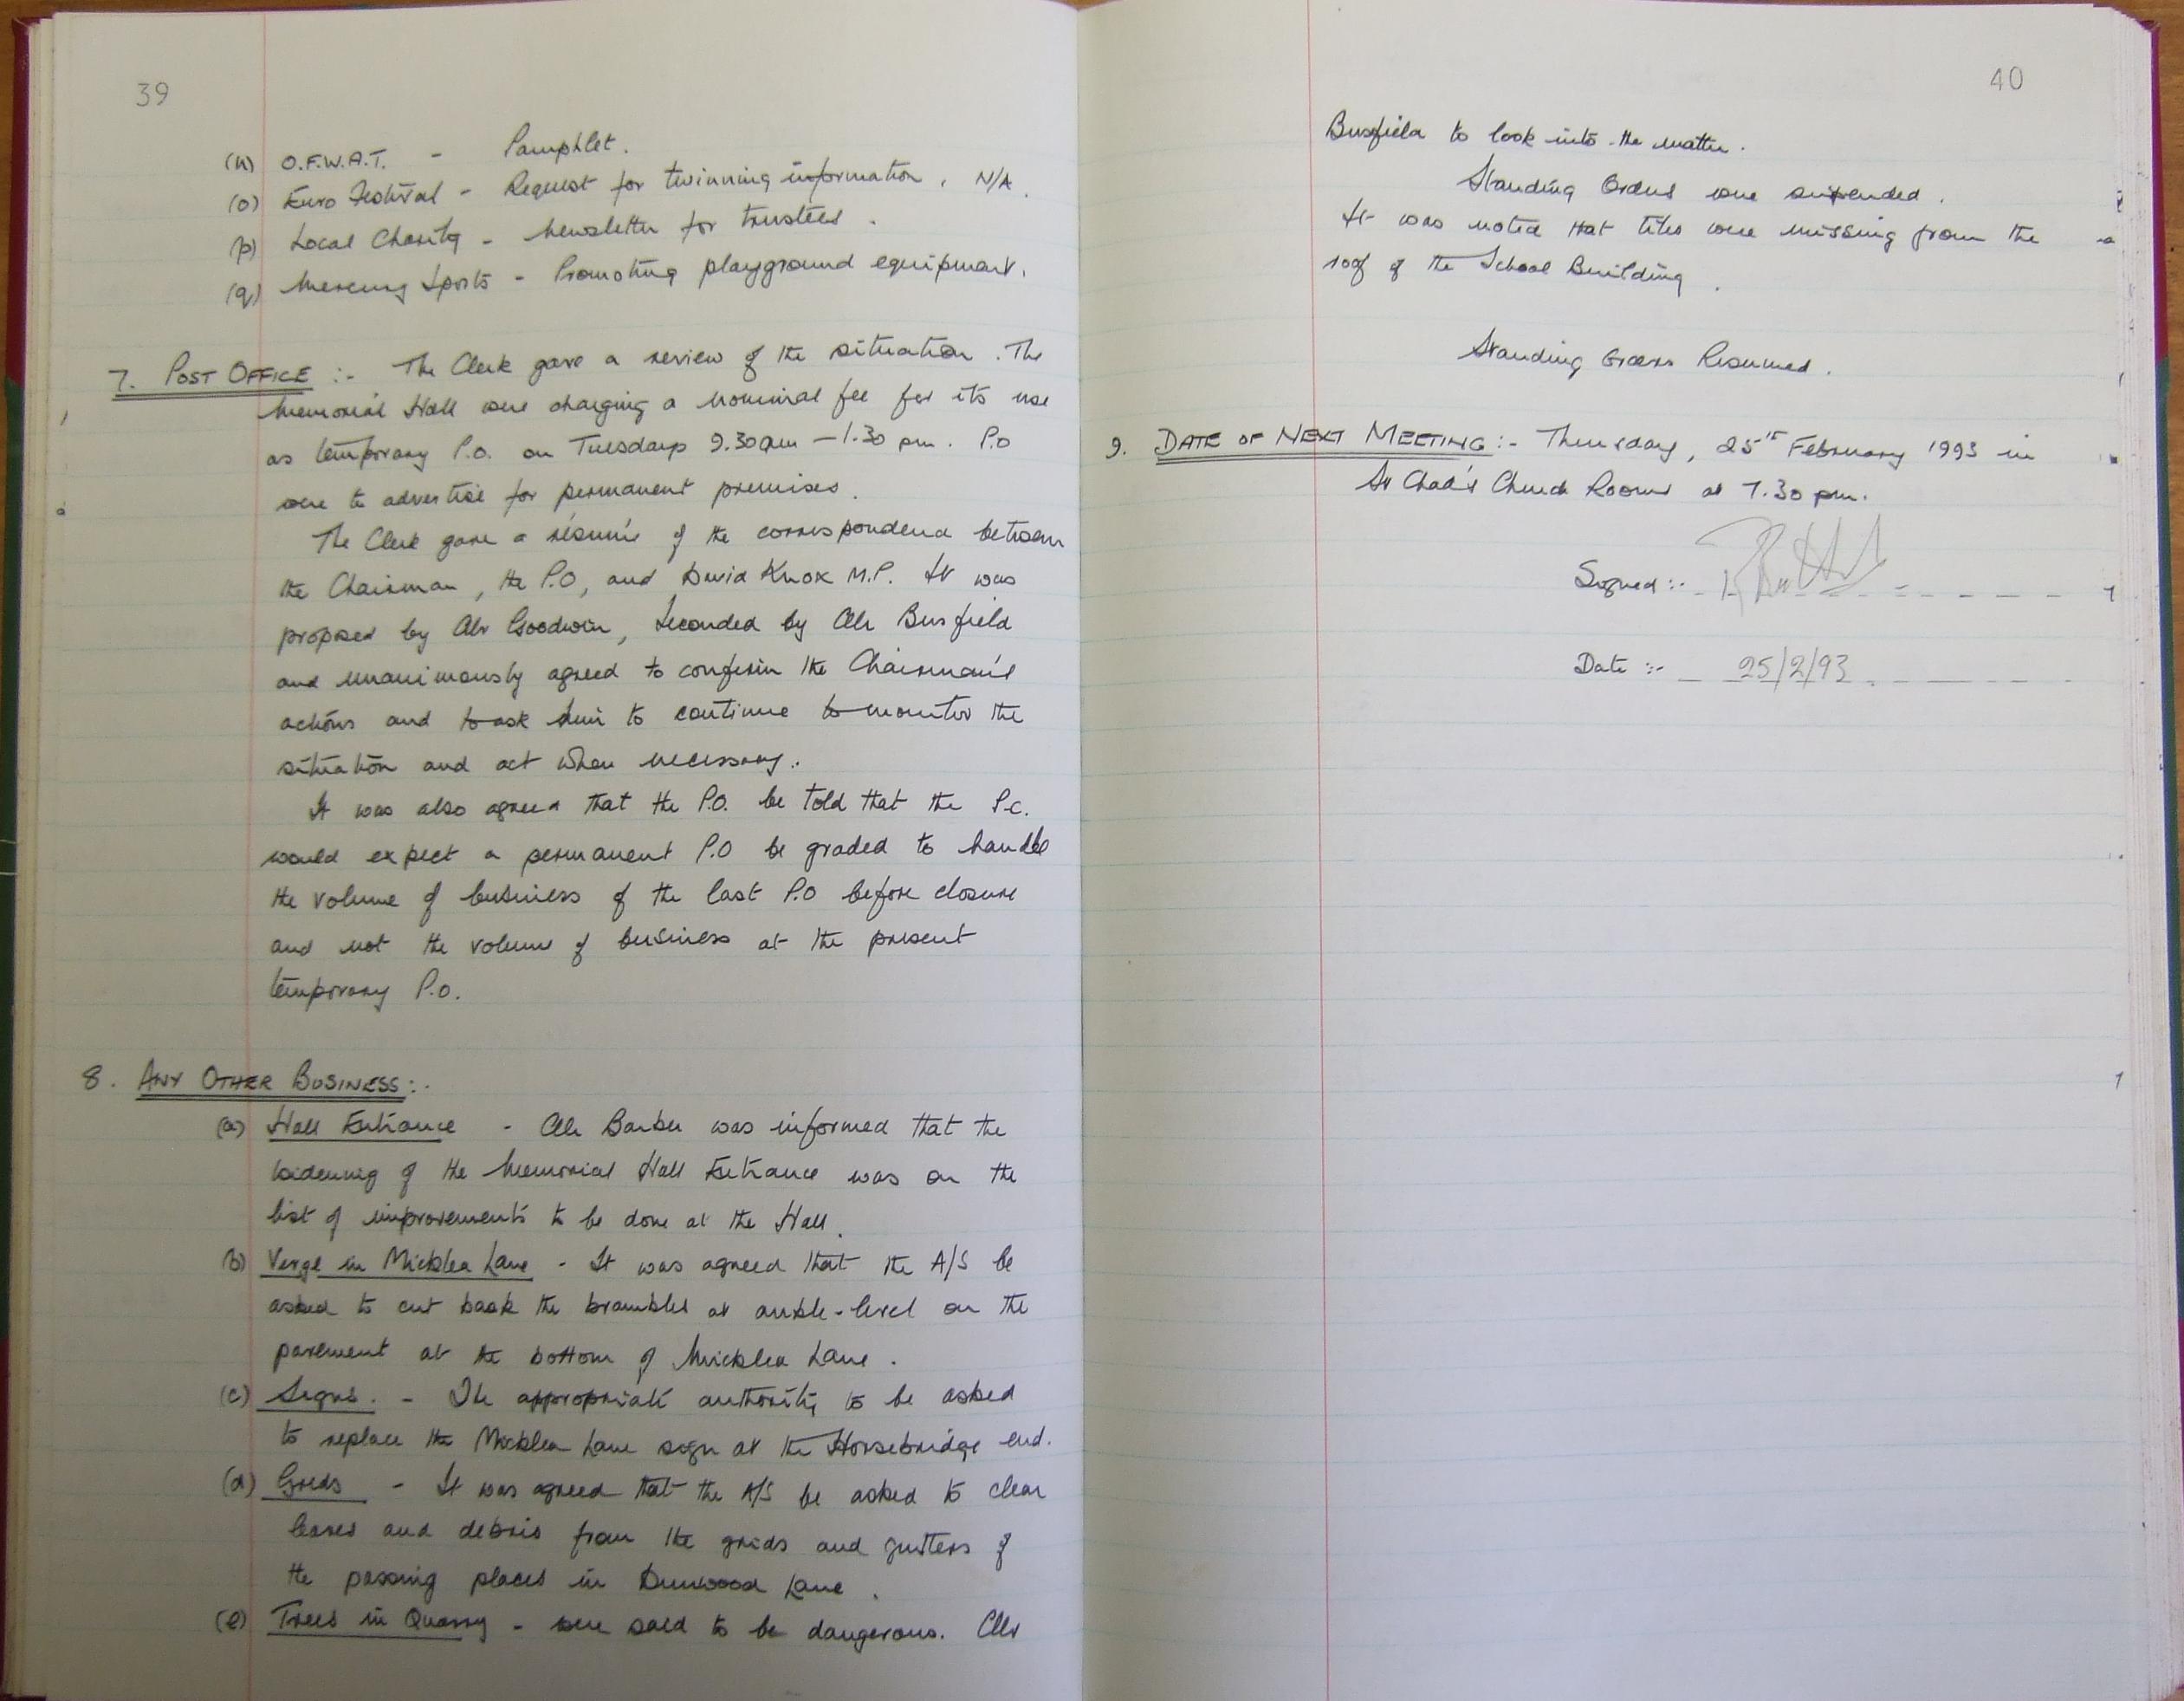 39
(n) O.F.W.A.T. - Pamphlet.
(o) Euro Festival - Request for twinning information. N/A.
(p) Local Charity - Newsletter for trustees.
(q) Mercury Sports - Promoting playground equipment.
7. POST OFFICE :- The Clerk gave a review of the situation. The
Memorial Hall were charging a nominal fee for its use
as temporary P.O. on Tuesdays 9.30am - 1.30 pm. P.O
were to advertise for permanent premises.
The Clerk gave a résumé of the correspondence between
the Chairman, the P.O, and David Knox M.P. It was
proposed by Cllr Goodwin, seconded by Cllr Busfield
and unanimously agreed to confirm the Chairman's
actions and to ask him to continue to monitor the
situation and act when necessary.
It was also agreed that the P.O. be told that the P.C.
would expect a permanent P.O be graded to handle
the volume of business of the last P.O before closure
and not the volume of business at the present
temporary P.O.
8. ANY OTHER BUSINESS:-
(a) Hall Entrance - Cllr Barber was informed that the
widening of the Memorial Hall Entrance was on the
list of improvements to be done at the Hall.
(b) Verge in Micklea Lane - It was agreed that the A/S be
asked to cut back the brambles at ankle-level on the
pavement at the bottom of Micklea Lane.
(c) Signs. - The appropriate authority to be asked
to replace the Micklea Lane sign at the Horsebridge end.
(d) Grids - It was agreed that the A/S be asked to clear
leaves and debris from the grids and gutters of
the passing places in Dunwood Lane.
(e) Trees in Quarry - were said to be dangerous. Cllr
40
Busfield to look into the matter.
Standing Orders were suspended.
It was noted that tiles were missing from the
roof of the School Building.
Standing Orders Resumed.
9. DATE OF NEXT MEETING:- Thursday, 25th February 1993 in
St Chad's Church Rooms at 7.30 pm.
Signed :-
Date :- 25/2/93